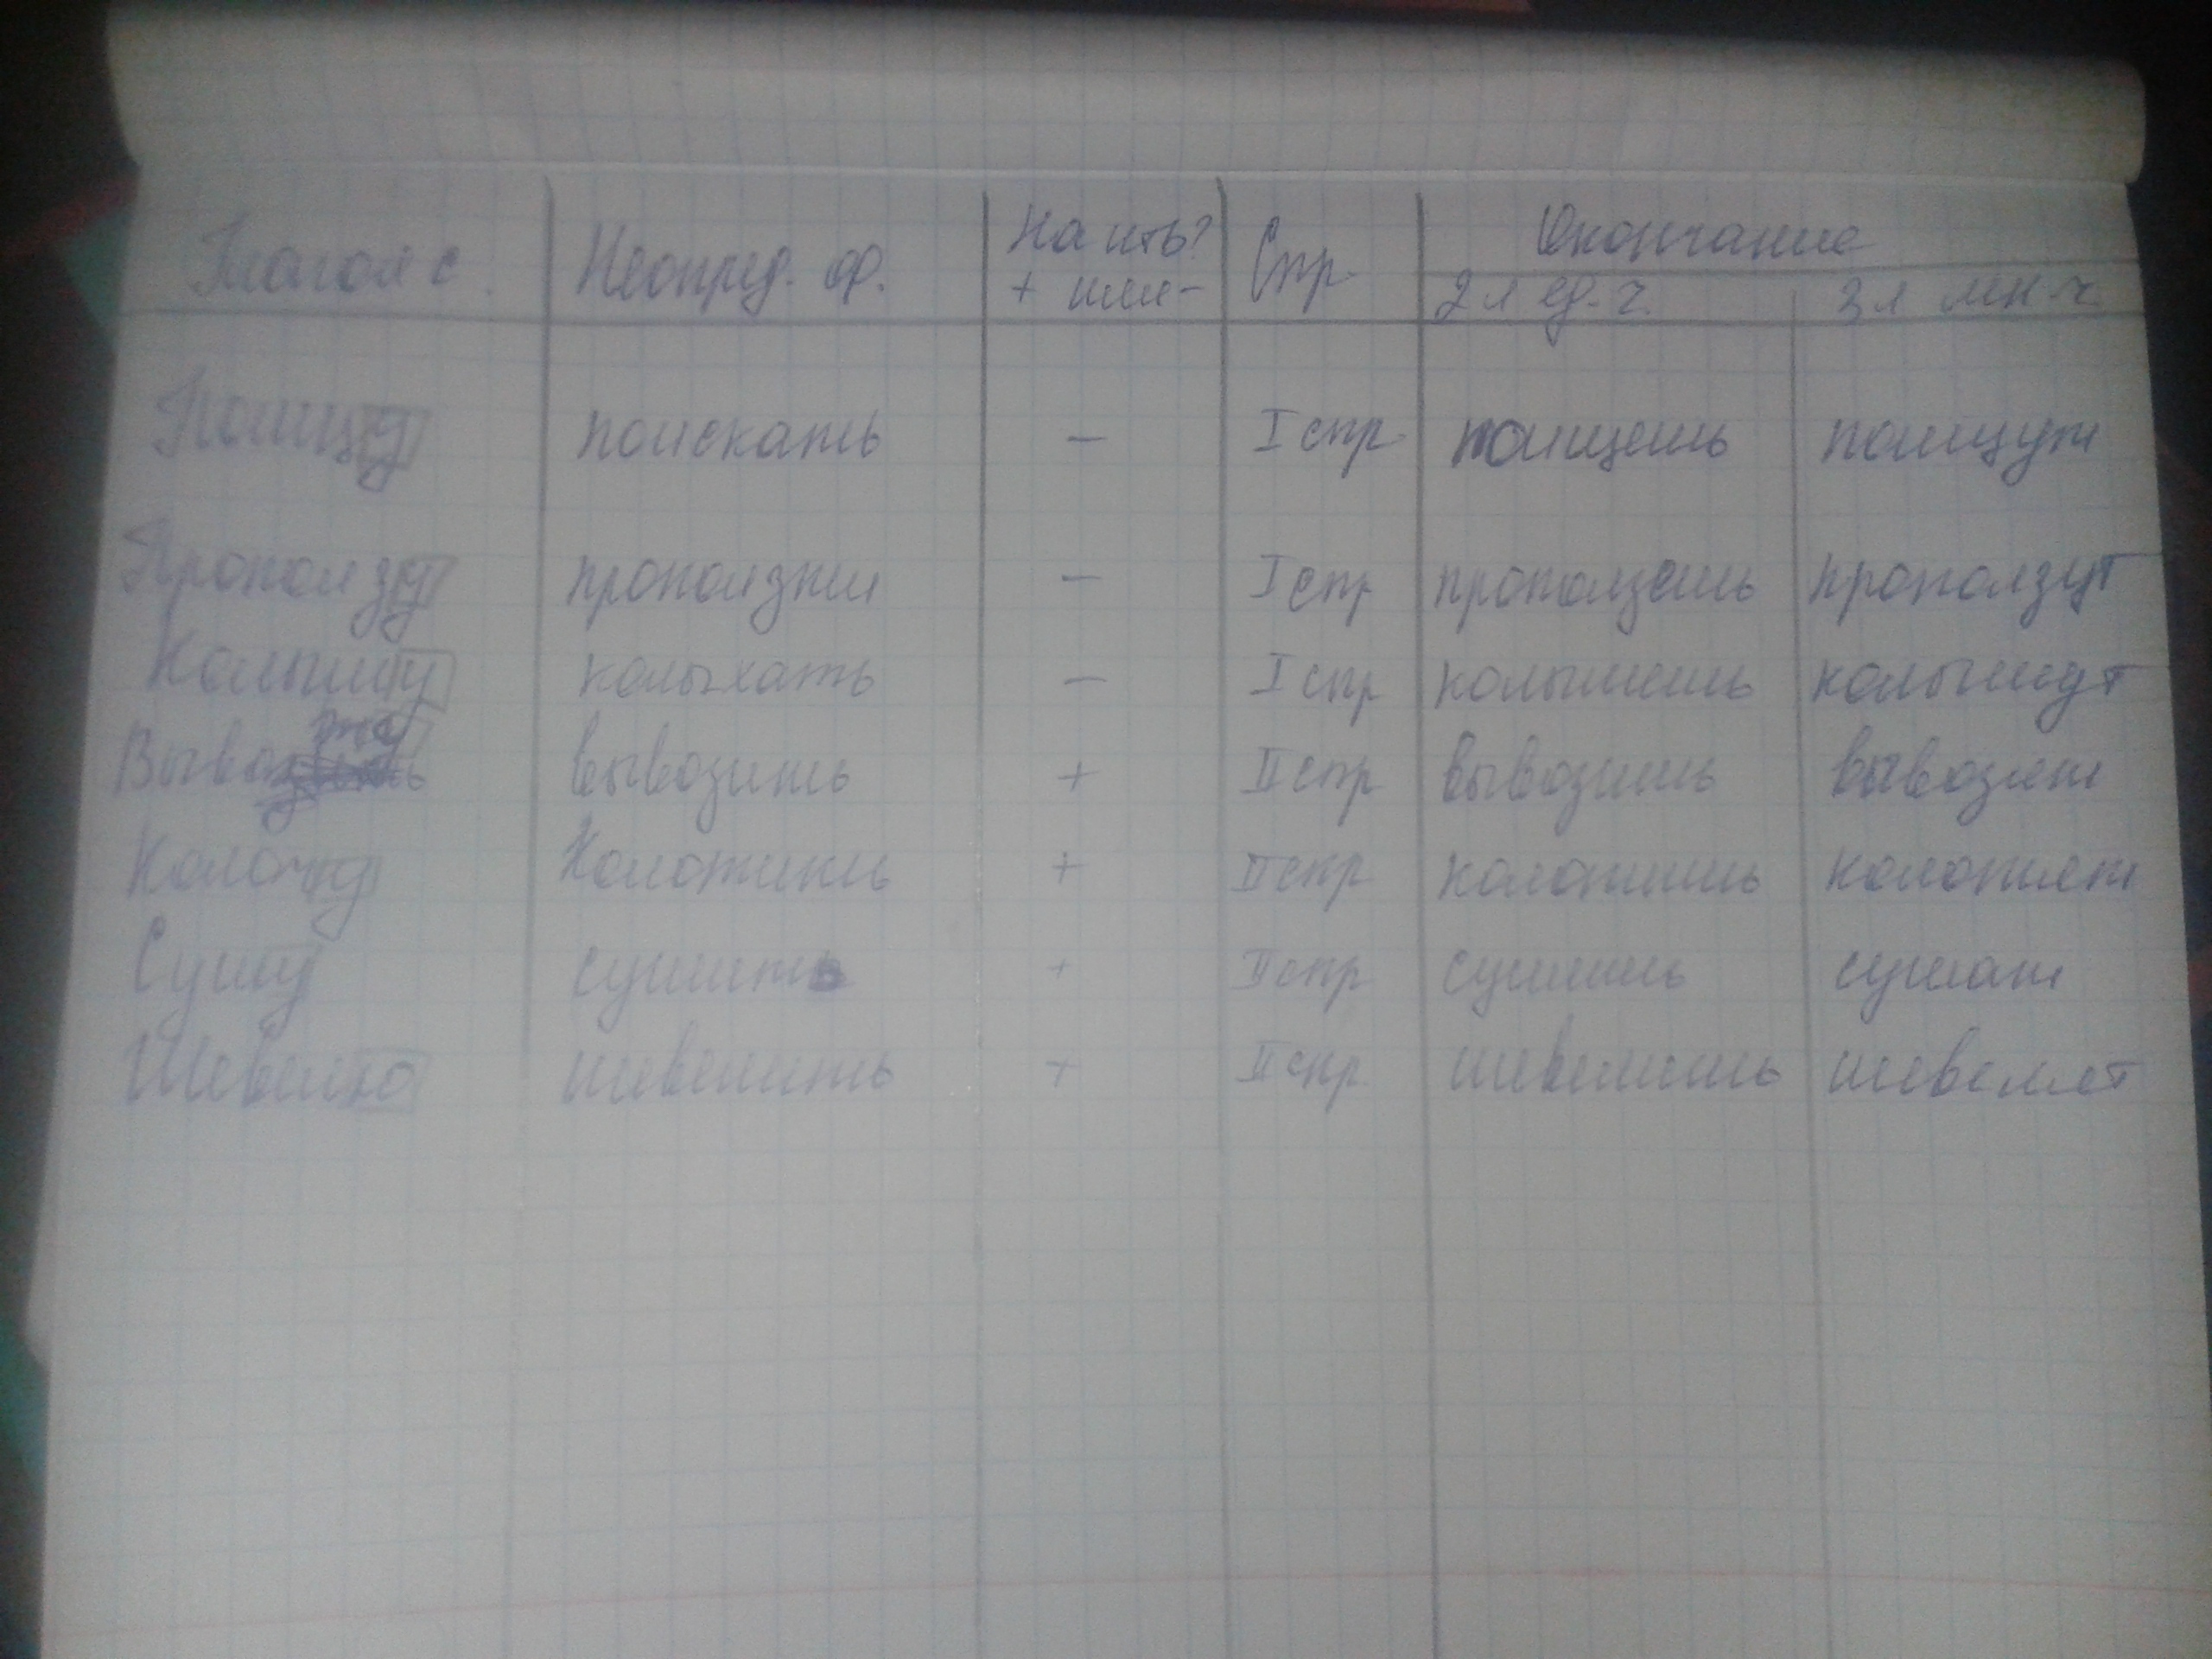 Глагол с Неопред. ф. На ить? + или - Спр Окончание
2 л ед. ч. 3 л мн. ч.
Поищу поискать — I спр поищешь поищут
Проползу проползти — I спр проползешь проползут
Колышу колыхать — I спр колышешь колышут
Вывожу вывозить + II спр вывозишь вывозят
Колочу Колотить + II спр колотишь колотят
Сушу сушить + II спр сушишь сушат
Шевелю шевелить + II спр шевелишь шевелят